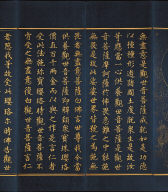 無盡意是觀世音菩薩成就如是功德
以種種形遊諸國土度脫眾生是故汝
等應當一心供養觀世音菩薩是觀世
音菩薩摩訶薩於怖畏急難之中能施
無畏是故此娑婆世界皆號之為施
無畏者無盡意菩薩白佛言世尊我今當
供養觀世音菩薩即解頸眾寶珠瓔珞
價直百千兩金而以與之作是言仁者
受此法施珍寶瓔珞時觀世音菩薩不
肯受之無盡意復白觀世音菩薩言仁
者愍我等故受此瓔珞爾時佛告觀世